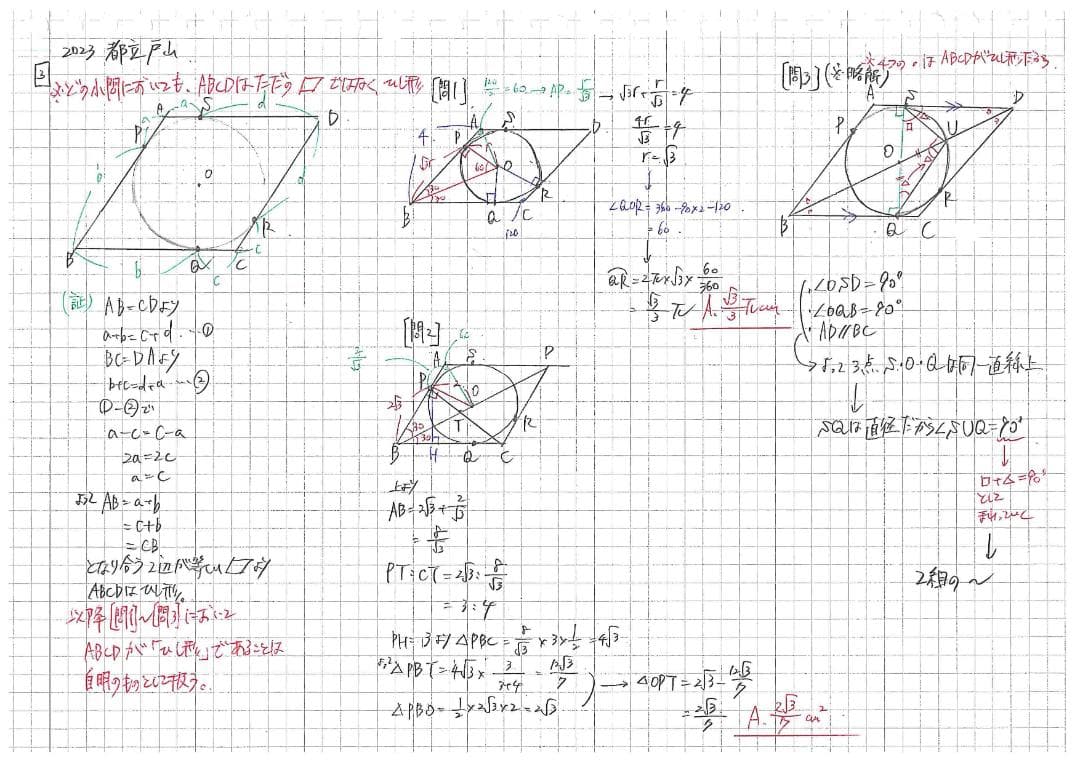 2023 都立戸山
3
※どの小問においても、ABCDはただの▱ではなくひし形
A
a
S
d
D
a
P
b
O
d
R
B
b
Q
C
c
c
(証) AB=CDより
a+b=c+d …①
BC=DAより
b+c=d+a …②
①-②で
a-c=c-a
2a=2c
a=c
よって AB=a+b
=c+b
=CB
となり合う2辺が等しい▱より
ABCDはひし形。
以降[問1]~[問3]において
ABCDが「ひし形」であることは
自明のものとして扱う。
[問1]
120/2=60→AP=r/√3
→√3r+r/√3=4
4r/√3=4
r=√3
∠QOR=360-90×2-120
=60.
QR=2π×√3×60/360
=√3/3π
A. √3/3πcm
4
A
S
D
P
√3r
r
60
O
30
30
R
B
Q
C
120
[問2]
2/√3
60
A
S
D
P
2
O
2√3
T
R
30
30
B
H
Q
C
上より
AB=2√3+2/√3
=8/√3
PT:CT=2√3:8/√3
=3:4
PH=3より△PBC=8/√3×3×1/2=4√3
よって△PBT=4√3×3/3+4=12√3/7
△PBO=1/2×2√3×2=2√3
→△OPT=2√3-12√3/7
=2√3/7
A. 2√3/7cm²
[問3](※略解)
※4つの•はABCDがひし形だから
A
S
D
P
U
O
R
B
Q
C
・∠OSD=90°
・∠OQB=90°
・AD//BC
→よって3点S・O・Qは同一直線上
SQは直径だから∠SUQ=90°
□+△=90°
として
まわっていく
2組の~